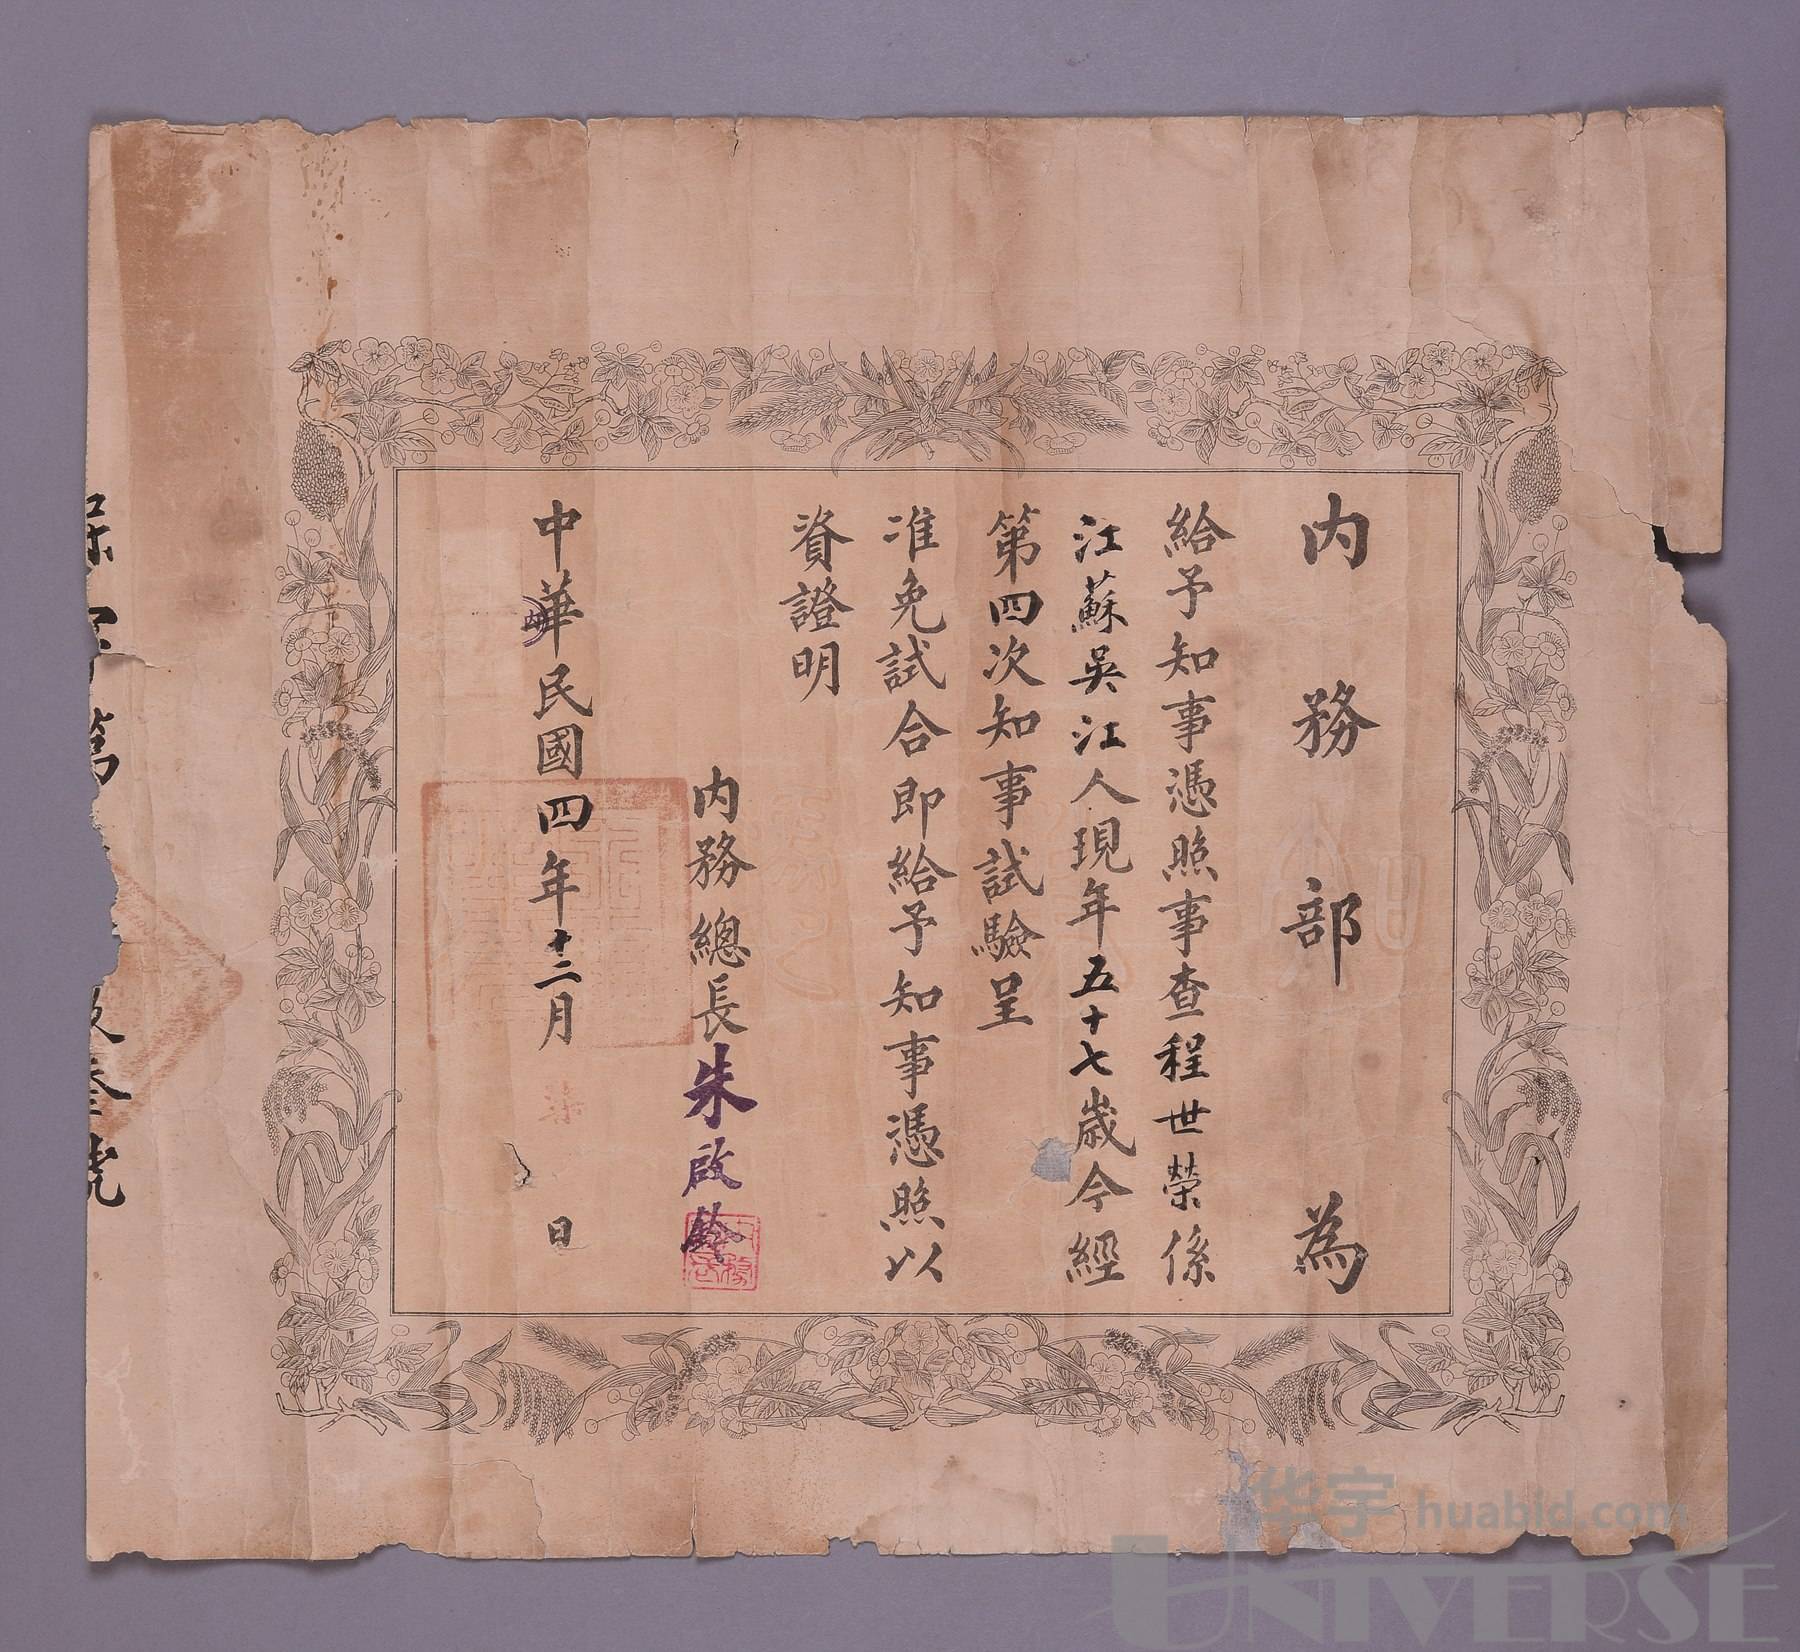 內務部為
給予知事憑照事查程世榮係
江蘇吳江人現年五十七歲今經
第四次知事試驗呈
准免試合即給予知事憑照以
資證明
內務總長朱啟鈐
中華民國四年十二月 日
叁號
华宇 huabid.com
UNIVERSE